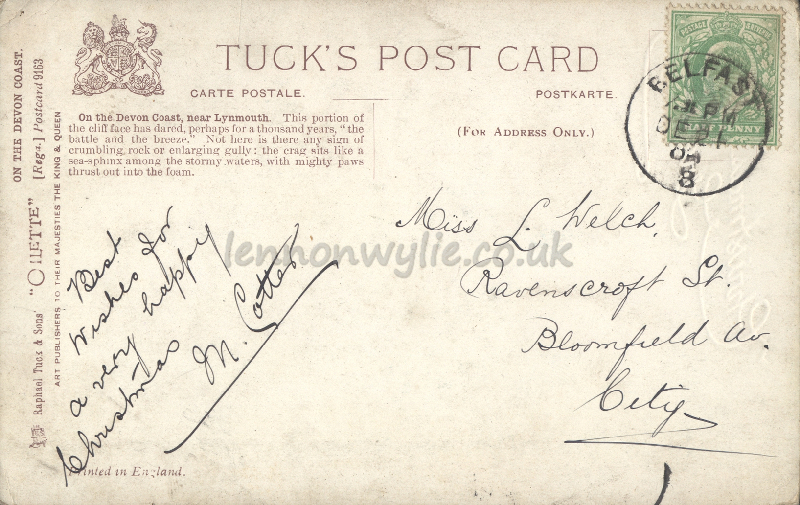 TUCK'S POST CARD
CARTE POSTALE.
POSTKARTE.
(FOR ADDRESS ONLY.)
On the Devon Coast, near Lynmouth. This portion of
the cliff face has dared, perhaps for a thousand years, "the
battle and the breeze." Not here is there any sign of
crumbling rock or enlarging gully: the crag sits like a
sea-sphinx among the stormy waters, with mighty paws
thrust out into the foam.
ON THE DEVON COAST.
[Regd.] Postcard 9163
Raphael Tuck & Sons' "OILETTE"
ART PUBLISHERS TO THEIR MAJESTIES THE KING & QUEEN
POSTAGE
HALFPENNY
BELFAST
PM
DE
8
Best
wishes for
a very happy
Christmas
M. Cotter
Miss L. Welch,
Ravenscroft St.
Bloomfield Av.
City
Printed in England.
lennonwylie.co.uk